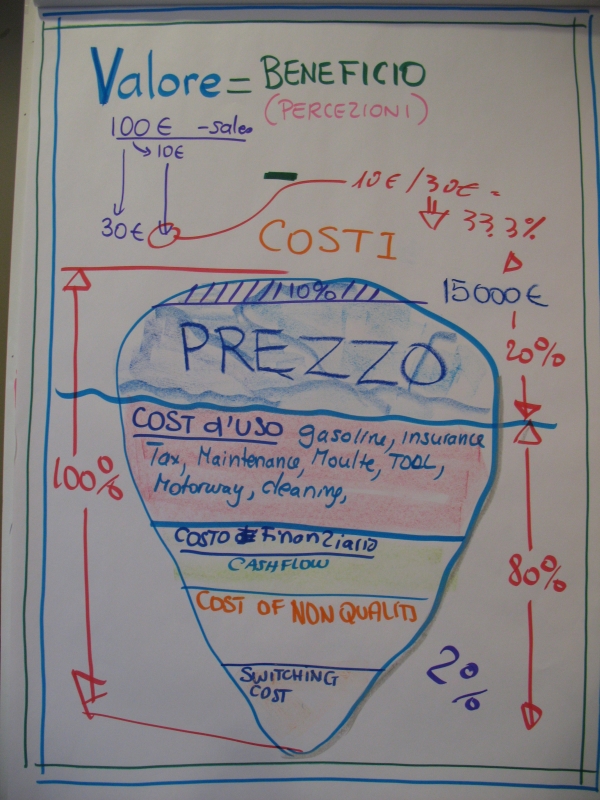 Valore = BENEFICIO
(PERCEZIONI)
100 € - sales
10€
30€
10€ / 30€ =
33.3%
COSTI
10%
15000€
PREZZO
20%
COST d'USO gasoline, insurance
Tax, Maintenance, Moulte, TOOL,
Motorway, cleaning,
100%
COSTO Finanziario
CASHFLOW
80%
COST OF NON QUALITY
SWITCHING
COST
2%